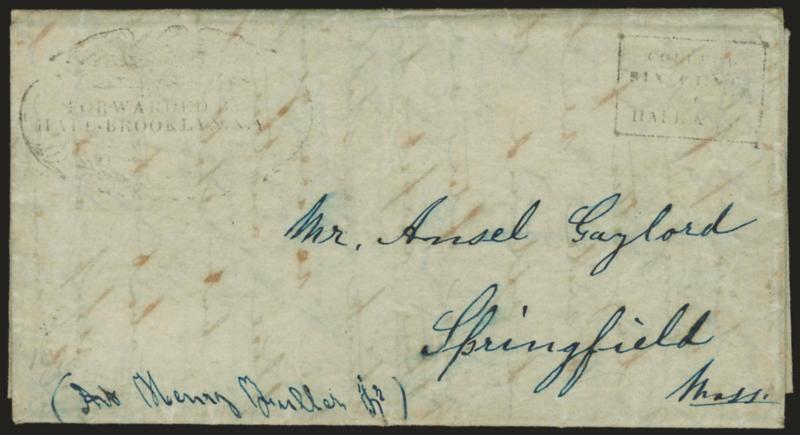 FORWARDED BY
HALL BROOKLYN. N.Y
COLLECT
SIX CENTS
HALL &
Mr. Ansel Gaylord
Springfield
Mass.
Henry Fuller Jr)